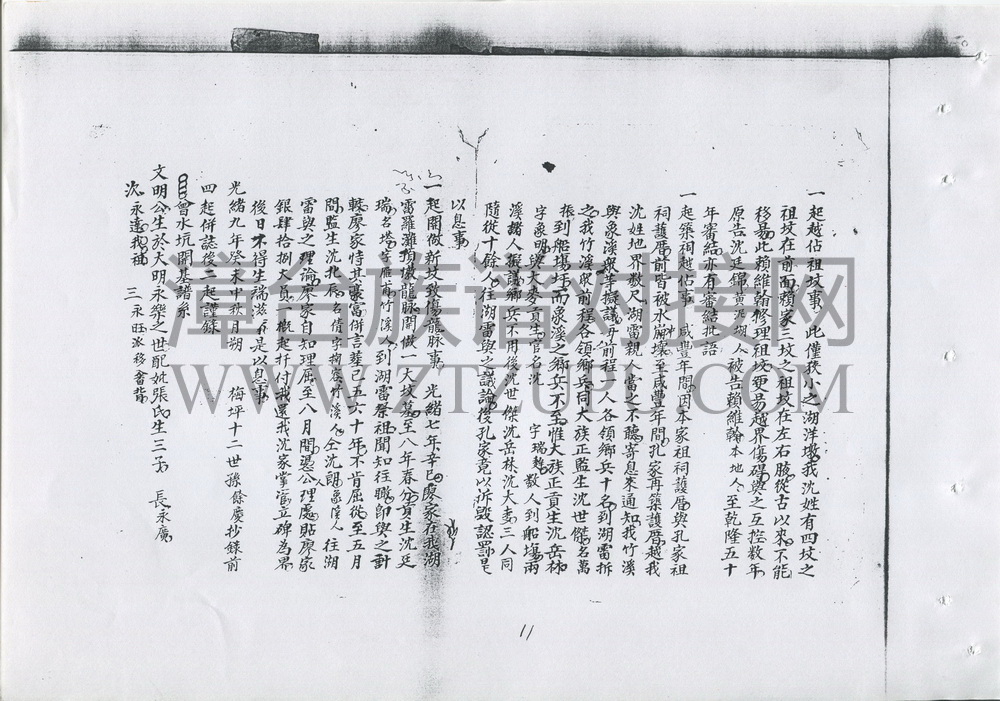 一起越佔祖坟事 此僅狹小之湖洋墩我沈姓有四坟之
祖坟在前面賴家三坟之祖坟在左右腋從古以來不能
移易此賴維翰修理祖坟更易越界傷碍與之互控數年
原告沈廷錦 人被告賴維翰本地人至乾隆五十
年審結亦有審結批語
一起築祠越佔事 咸豐年間因本家祖祠護厝與孔家祖
祠護厝前皆被水崩壞至咸豐年間孔家再築護厝越我
沈姓地界数尺湖雷親人當之不聽寄息來通知我竹溪
與象溪眾等擬議 前程人各領鄉兵十名到湖雷拆
之我竹溪眾前程各領鄉兵同大族正監生沈世傑名萬
張到船塲坪而象溪之鄉兵不至惟大族正貢生沈岳林
字象明與大麥貢生官名沈 字瑞麵 数人到船塲兩
溪諸人 議鄉兵不用後沈世傑沈岳林沈大麦三人同
隨從十餘人往湖雷與之議論後孔家竟以拆毀認罰
以息事
一起開做新坟致傷龍脉事 光緒七年辛巳廖家在我湖
雷羅灘 龍脉開做一大坟墓至八年春分貢生沈廷
瑞名塔 竹溪人到湖雷祭祖聞知往職 即與之對
較廖家恃其豪富併言葬已五六十年不肯屈從至五月
間監生沈北辰 仝沈朗 往湖
雷與之理論廖家自知理屈至八月間憑公理處貼廖家
銀肆拾捌大員 概起扦付我還我沈家掌管立碑為界
後日不得生端滋 是以息事
光緒九年癸未中秋月朔 梅坪十二世孫餘慶抄錄前
四起併誌後二起謹錄
曾水坑開基譜系
文明公生於大明永樂之世配妣張氏生三子 長永廣
次永遠我祖 三永旺派移會背
11
漳台族谱对接网
WWW.ZTZUPU.COM